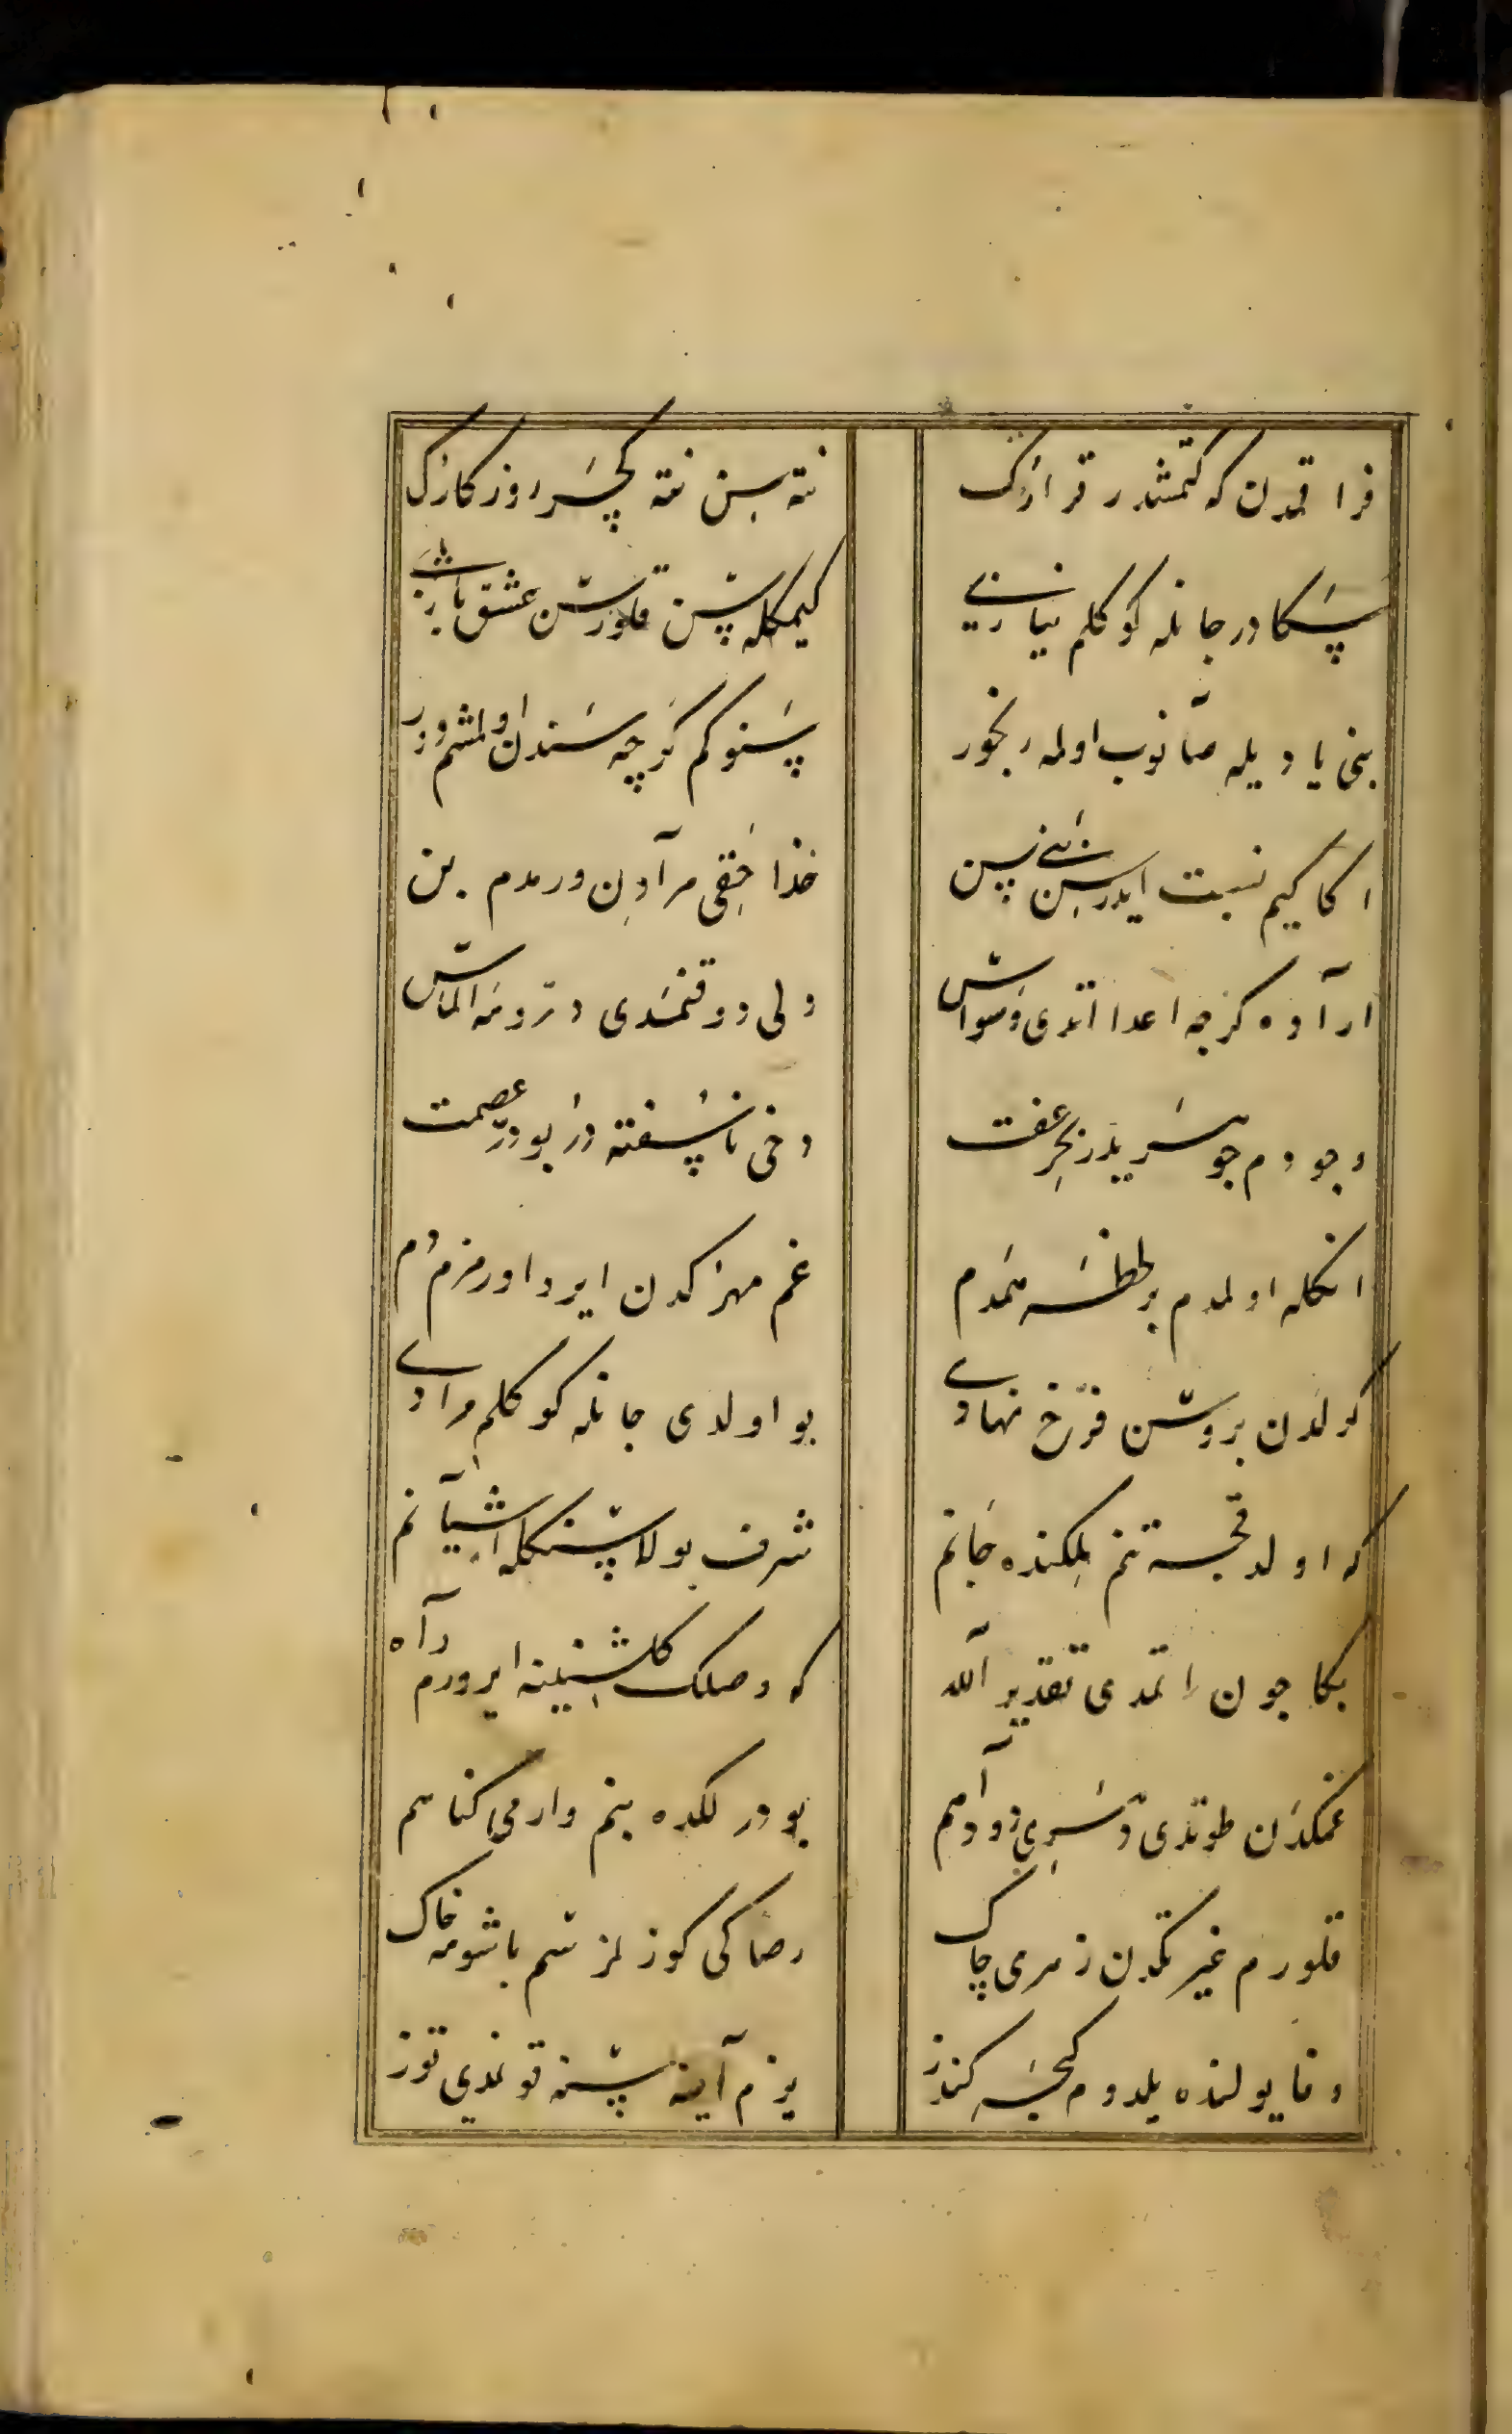 فراقمدن که کتمشدر قرارک
نته سن نته کچر روزکارک
سکادر جانله کوکلم نیازی
کیمکله سن قلورسن عشق بازی
بنی یادیله صانوب اولمه رنجور
سنوکم کرچه سندن اولمشم دور
اکا کیم نسبت ایدرسن بنی سن
خدا حقی مرادن ورمدم بن
اراده کرچه اعدا اتدی وسواس
ولی دوقنمدی درومه الماس
وجودم جوهریدر بحر عفت
دخی ناسفته در بو در عصمت
انکله اولمدم بر لحظه همدم
غم مهرکدن ایرد اورمزم دم
کورلدن بروسن فرخ نهادی
بو اولدی جانله کوکلم مرادی
که اولد قجسه تنم ملکنده جانم
شرف بولا سنکله اشیانم
بکا چون اتمدی تقدیر الله
که وصلک کلشنینه ایرورم راه
غمکدن طوتدی دهری دود آهم
بودر لکده بنم وارمی کناهم
قلورم غیرتکدن زهرهی چاک
رضاکی کوزلرسم باشومه خاک
وفا یولنده یلدوم کجه کندز
یوزم آینه سنه قونمدی توز